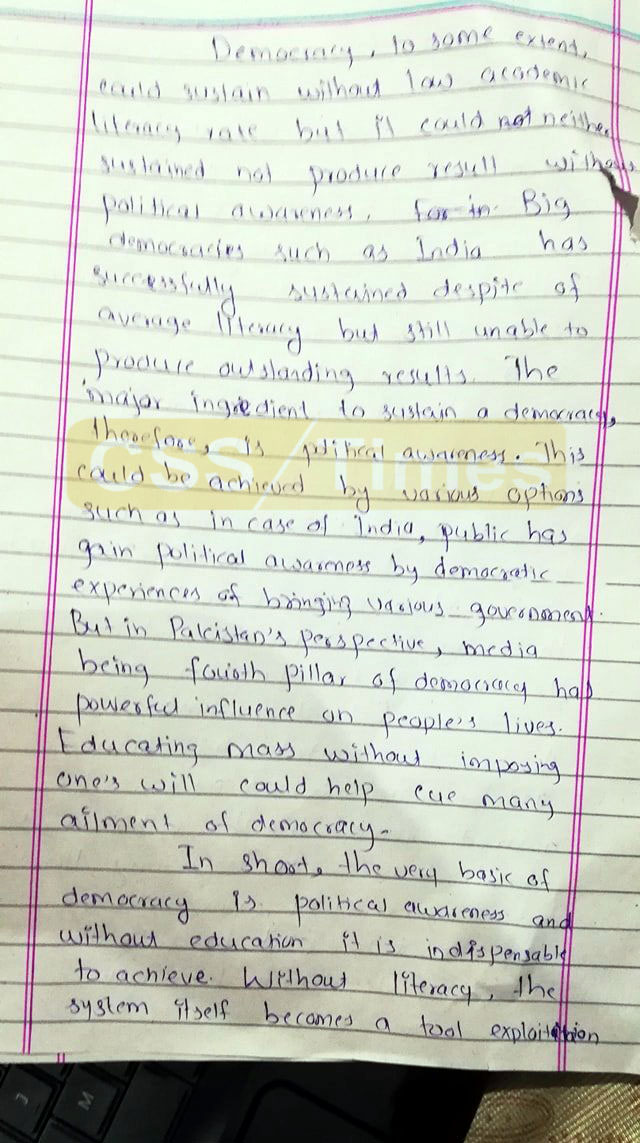 Democracy, to some extent,
could sustain without low academic
literacy rate but it could not neither
sustained not produce result without
political awareness. for in Big
democracies such as India has
successfully sustained despite of
average literacy but still unable to
produce outstanding results. The
major ingredient to sustain a democracy,
therefore, is political awareness. This
could be achieved by various options
such as in case of India, public has
gain political awareness by democratic
experiences of bringing various government.
But in Pakistan's perspective, media
being fourth pillar of democracy has
powerful influence on people's lives.
Educating mass without imposing
one's will could help cue many
ailment of democracy.
In short, the very basic of
democracy is political awareness and
without education it is indispensable
to achieve. Without literacy, the
system itself becomes a tool exploitation
CSS Times
M